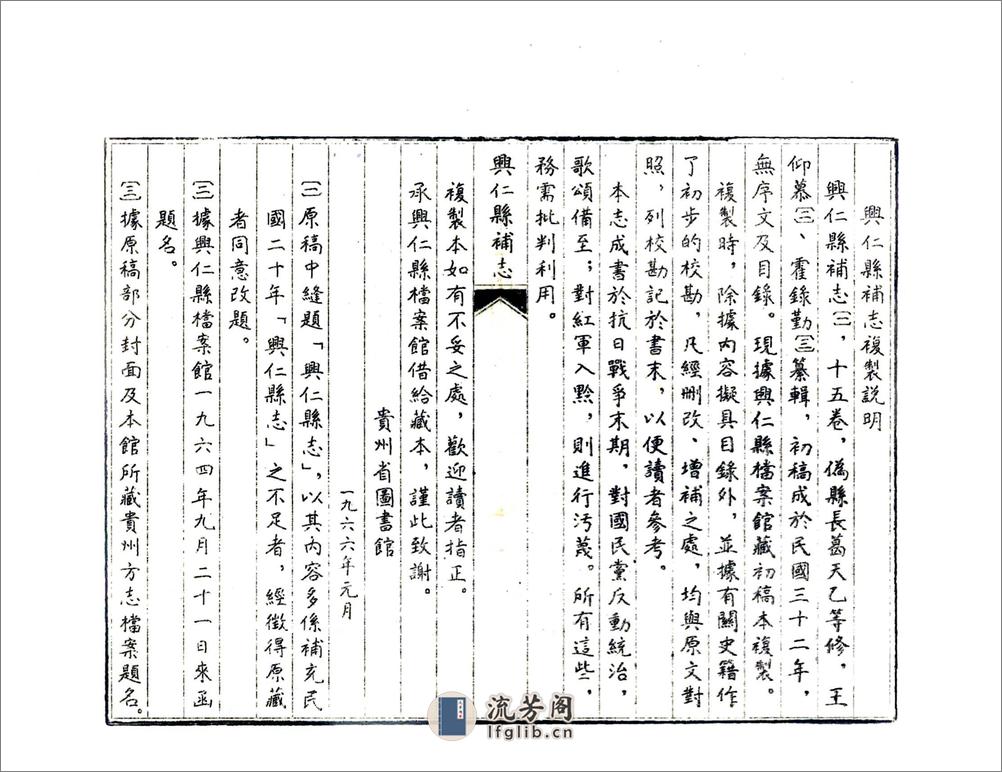 興仁縣補志複製説明
興仁縣補志㈠，十五卷，偽縣長葛天乙等修，王
仰慕㈡、霍錄勤㈢纂輯，初稿成於民國三十二年，
無序文及目錄。現據興仁縣檔案館藏初稿本複製。
複製時，除據內容擬具目錄外，並據有關史籍作
了初步的校勘，凡經刪改、增補之處，均與原文對
照，列校勘記於書末，以便讀者參考。
本志成書於抗日戰爭末期，對國民黨反動統治，
歌頌備至；對紅軍入黔，則進行污蔑。所有這些，
務需批判利用。
興仁縣補志
複製本如有不妥之處，歡迎讀者指正。
承興仁縣檔案館借給藏本，謹此致謝。
貴州省圖書館
一九六六年元月
㈠原稿中縫題「興仁縣志」，以其內容多係補充民
國二十年「興仁縣志」之不足者，經徵得原藏
者同意改題。
㈡據興仁縣檔案館一九六四年九月二十一日來函
題名。
㈢據原稿部分封面及本館所藏貴州方志檔案題名。
流芳阁
lfglib.cn